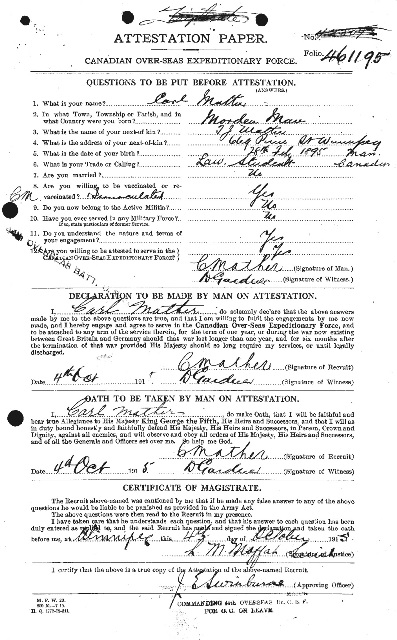 Triplicate
ATTESTATION PAPER.
No.
Folio. 461195
CANADIAN OVER-SEAS EXPEDITIONARY FORCE.
QUESTIONS TO BE PUT BEFORE ATTESTATION.
(ANSWERS.)
1. What is your name? Carl Mather
2. In what Town, Township or Parish, and in
what Country were you born? Morden Man
3. What is the name of your next-of-kin? T J Mather
4. What is the address of your next-of-kin? Pine St Winnipeg
5. What is the date of your birth? Feb 1895 Man.
6. What is your Trade or Calling? Law Student Canadian
7. Are you married? No
8. Are you willing to be vaccinated or re-
vaccinated? Yes
9. Do you now belong to the Active Militia? No
10. Have you ever served in any Military Force? No
If so, state particulars of former Service.
11. Do you understand the nature and terms of
your engagement? Yes
12. Are you willing to be attested to serve in the
CANADIAN OVER-SEAS EXPEDITIONARY FORCE? Yes
C Mather (Signature of Man.)
D Gardner (Signature of Witness.)
DECLARATION TO BE MADE BY MAN ON ATTESTATION.
I, Carl Mather do solemnly declare that the above answers
made by me to the above questions are true, and that I am willing to fulfil the engagements by me now
made, and I hereby engage and agree to serve in the Canadian Over-Seas Expeditionary Force, and
to be attached to any arm of the service therein, for the term of one year, or during the war now existing
between Great Britain and Germany should that war last longer than one year, and for six months after
the termination of that war provided His Majesty should so long require my services, or until legally
discharged.
C Mather (Signature of Recruit)
Date 4th Oct 191 D Gardner (Signature of Witness)
OATH TO BE TAKEN BY MAN ON ATTESTATION.
I, Carl Mather do make Oath, that I will be faithful and
bear true Allegiance to His Majesty King George the Fifth, His Heirs and Successors, and that I will as
in duty bound honestly and faithfully defend His Majesty, His Heirs and Successors, in Person, Crown and
Dignity, against all enemies, and will observe and obey all orders of His Majesty, His Heirs and Successors,
and of all the Generals and Officers set over me. So help me God.
C Mather (Signature of Recruit)
Date 4th Oct 1915 D Gardner (Signature of Witness)
CERTIFICATE OF MAGISTRATE.
The Recruit above-named was cautioned by me that if he made any false answer to any of the above
questions he would be liable to be punished as provided in the Army Act.
The above questions were then read to the Recruit in my presence.
I have taken care that he understands each question, and that his answer to each question has been
duly entered as replied to, and the said Recruit has made and signed the declaration and taken the oath
before me, at Winnipeg this 4th day of October 1915
M Moffat
I certify that the above is a true copy of the Attestation of the above-named Recruit.
J E Swinburne (Approving Officer)
M. F. W. 23.
COMMANDING OVERSEAS
FOR O.C. ON LEAVE